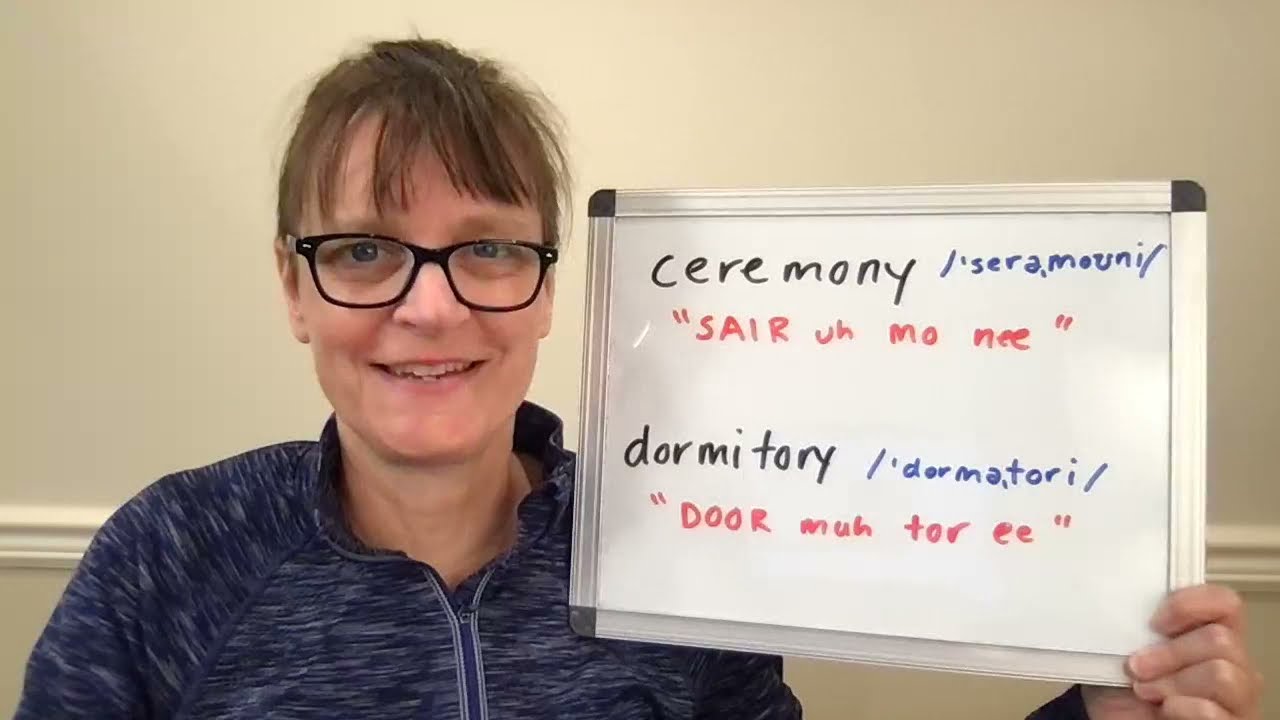 ceremony /ˈserəˌmoʊni/
"SAIR uh mo nee"
dormitory /ˈdorməˌtori/
"DOOR muh tor ee"